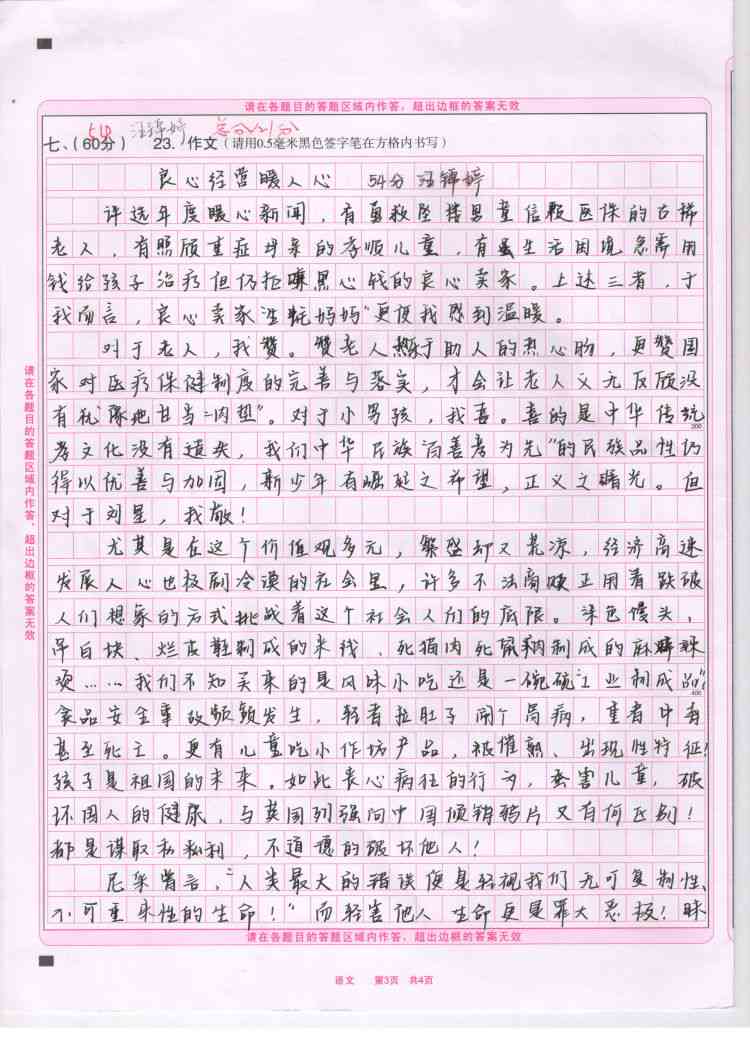 请在各题目的答题区域内作答，超出边框的答案无效
54 汪锦婷 总分121分
七、（60分） 23. 作文（请用0.5毫米黑色签字笔在方格内书写）
良心经营暖人心 54分 汪锦婷
评选年度暖心新闻，有勇救坠楼男童信赖医保的古稀
老人，有照顾重症母亲的孝顺儿童，有虽生活困境急需用
钱给孩子治疗但仍拒赚黑心钱的良心卖家。上述三者，于
我而言，良心卖家生蚝妈妈"更使我感到温暖。
对于老人，我赞。赞老人热于助人的热心肠，更赞国
家对医疗保健制度的完善与落实，才会让老人义无反顾没
有犹豫地甘当"肉垫"。对于小男孩，我喜。喜的是中华传统
孝文化没有遗失，我们中华民族"百善孝为先"的民族品性仍
200
得以优善与加固，新少年有崛起之希望，正义之曙光。但
对于刘星，我敬！
尤其是在这个价值观多元，繁盛却又荒凉，经济高速
发展人心也极刷冷漠的社会里，许多不法商贩正用着跌破
人们想象的方式挑战着这个社会人们的底限。染色馒头，
吊白块、烂皮鞋制成的米线、死猫肉死鼠肉制成的麻辣
烫……我们不知买来的是风味小吃还是一碗碗"工业制成品"！
400
食品安全事故频频发生，轻者拉肚子闹个局病，重者中毒
甚至死亡。更有儿童吃小作坊产品，被催熟、出现性特征！
孩子是祖国的未来。如此丧心病狂的行为，荼害儿童，破
坏国人的健康，与英国列强向中国倾销鸦片又有何区别！
都是谋取私利，不道德的破坏他人！
尼采曾言，"人类最大的错误便是轻视我们无可复制性、
不可重来性的生命！"而轻害他人生命更是罪大恶极！昧
请在各题目的答题区域内作答，超出边框的答案无效
请在各题目的答题区域内作答，超出边框的答案无效
语文 第3页 共4页